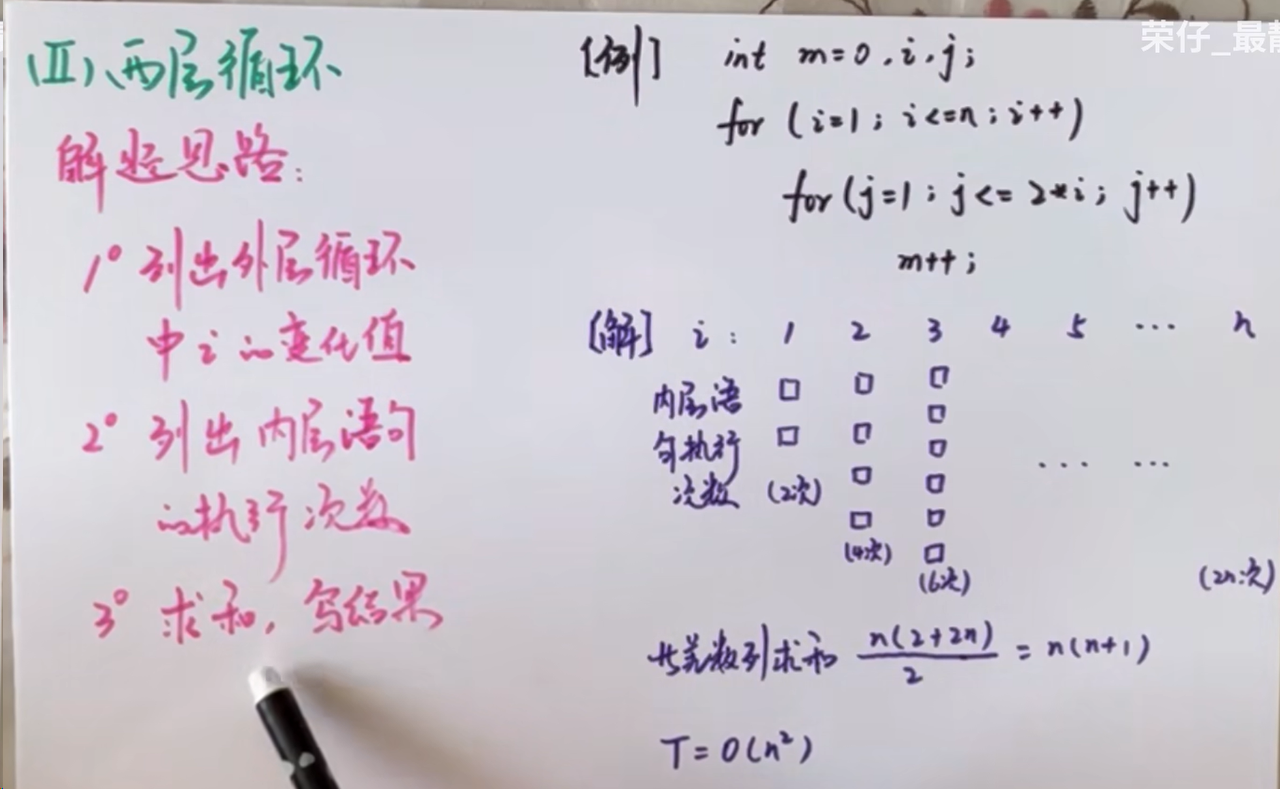 (Ⅱ)、两层循环
解题思路:
1° 列出外层循环
中i的变化值
2° 列出内层语句
的执行次数
3° 求和,写结果
荣仔_最
[例] int m=0,i,j;
for (i=1; i<=n; i++)
for(j=1; j<=2*i; j++)
m++;
[解] i: 1 2 3 4 5 ... n
内层语
句执行
次数 (2次)
... ...
(4次) (6次) (2n次)
等差数列求和 n(2+2n)/2 = n(n+1)
T=O(n²)